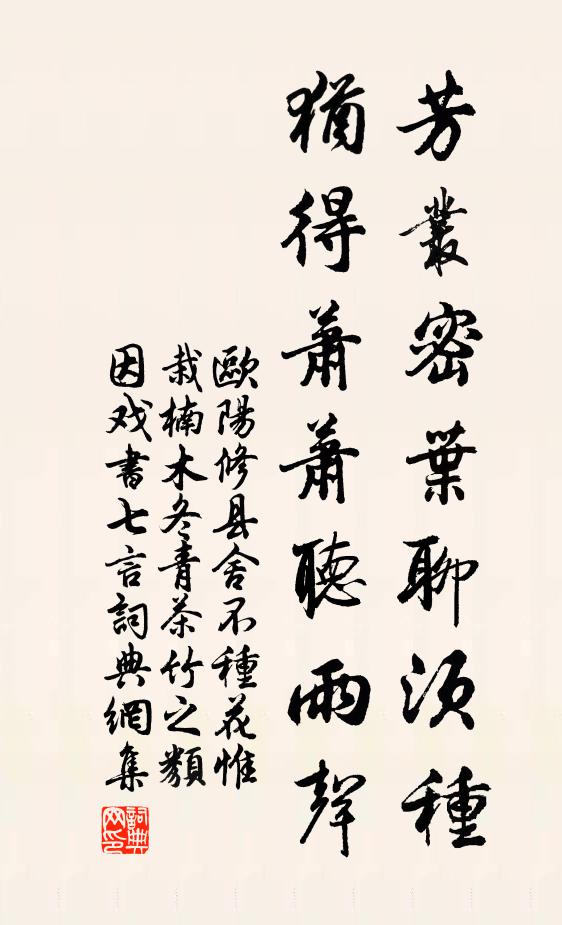 芳叢密葉聊須種
猶得蕭蕭聽雨聲
歐陽修县舍不種花惟
栽楠木冬青茶竹之類
因戏書七言詞典網集
詞典网印